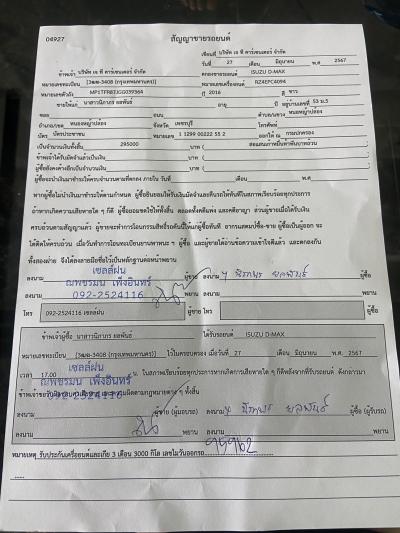 04927
สัญญาขายรถยนต์
เขียนที่ บริษัท เอ ที คาร์เซนเตอร์ จำกัด
วันที่ 27 เดือน มิถุนายน พ.ศ. 2567
ข้าพเจ้า บริษัท เอ ที คาร์เซนเตอร์ จำกัด ตกลงขายรถยนต์ ISUZU D-MAX
หมายเลขทะเบียน [3ฒฮ-3408 (กรุงเทพมหานคร)] หมายเลขเครื่องยนต์ RZ4EPC4094
หมายเลขตัวถัง MP1TFR87JGG039364 ปี 2016 สี ขาว
ขายให้แก่ นางสาวนิภาภร ยลพันธ์ อายุ ปี อยู่บ้านเลขที่ 53 ม.5
ซอย ถนน ตำบล/แขวง หนองหญ้าปล้อง
อำเภอ/เขต หนองหญ้าปล้อง จังหวัด เพชรบุรี โทรศัพท์
บัตร บัตรประชาชน หมายเลข 1 1299 00222 55 2 ออกให้ ณ กรมปกครอง
เป็นจำนวนเงินทั้งสิ้น 295000 บาท ( สองแสนเก้าหมื่นห้าพันบาทถ้วน
ข้าพเจ้าได้รับมัดจำแล้วเป็นเงิน บาท (
ผู้ซื้อยังคงค้างอีกเป็นจำนวนเงิน บาท (
ผู้ซื้อจะนำเงินมาชำระให้ครบจำนวนตามที่ตกลง ภายในวันที่
หากผู้ซื้อไม่นำเงินมาชำระให้ตามกำหนด ผู้ซื้อยินยอมให้ริบมัดจำและคืนรถให้ทันทีในสภาพเรียบร้อยทุกประการ
ถ้าหากเกิดความเสียหายใด ๆ ก็ดี ผู้ซื้อยอมชดใช้ให้ทั้งสิ้น ตลอดทั้งคดีแพ่ง และคดีอาญา ส่วนผู้ขายเมื่อได้รับเงิน
ครบถ้วนตามสัญญาแล้ว ผู้ขายจะทำการโอนกรรมสิทธิ์รถคันนี้ให้แก่ผู้ซื้อทันที
ได้คิดให้ครบถ้วน เมื่อวันทำการโอนทะเบียนยานพาหนะ ฯ ผู้ซื้อ และผู้ขายได้อ่านข้อความเข้าใจดีแล้ว และตกลงกัน
ทั้งสองฝ่าย จึงได้ลงลายมือชื่อไว้เป็นหลักฐานต่อหน้าพยาน
เซลล์ฝน
ลงนาม ผู้ขาย ลงนาม นิภาภร ยลพันธ์ ผู้ซื้อ
ณพชรมน เพ็งอินทร์
ลงนาม พยาน ลงนาม พยาน
092-2524116
โทร 092-2524116 เซลล์ฝน ผู้ขาย โทร ผู้ซื้อ
ข้าพเจ้าผู้ซื้อ นางสาวนิภาภร ยลพันธ์ ได้รับรถยนต์ ISUZU D-MAX
หมายเลขทะเบียน [3ฒฮ-3408 (กรุงเทพมหานคร)] ไว้ในครอบครอง เมื่อวันที่ 27 เดือน มิถุนายน พ.ศ. 2567
เซลล์ฝน
เวลา 17.00 น. ในสภาพเรียบร้อยทุกประการหากเกิดการเสียหายใด ๆ ก็ดีหลังจากที่รับรถยนต์ ดังกล่าวมา
ณพชรมน เพ็งอินทร์
092-2524116
ลงนาม ผู้ขาย (ผู้มอบรถ) ลงนาม นิภาภร ยลพันธ์ ผู้ซื้อ (ผู้รับรถ)
ลงนาม พยาน ลงนาม พยาน
95962
หมายเหตุ รับประกันเครื่องยนต์และเกียร์ 3 เดือน 3000 กิโล เลขไมล์วันออกรถ